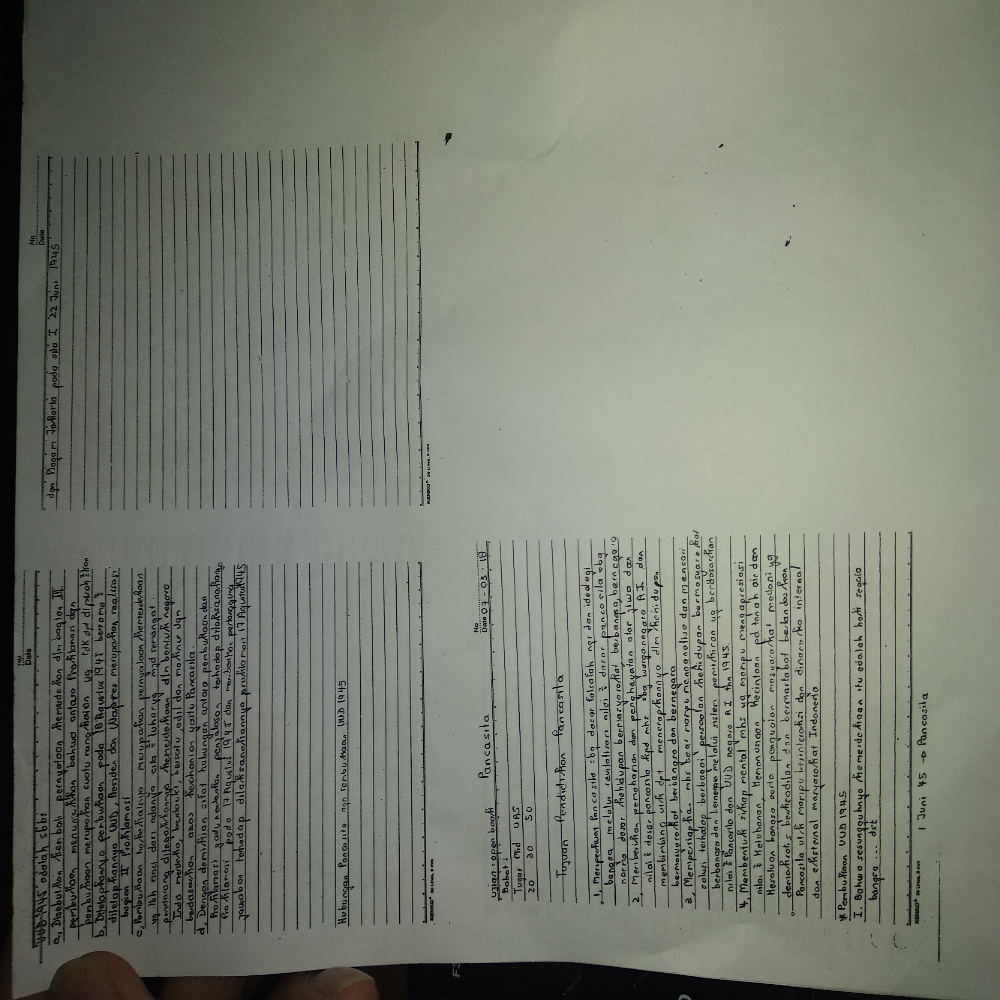 UUD 1945 adalah sbb:
a, Disebutkan kembali pernyataan kemerdekaan dlm bagian III
pembukaan menunjukkan bahwa antara Proklamasi dgn
pembukaan merupakan suatu rangkaian yg tdk dpt dipisahkan
b, Ditetapkannya pembukaan pada 18 Agustus 1945 bersama²
ditetapkannya UUD, Presiden dan Wapres merupakan realisasi
bagian II Proklamasi
c, Pembukaan hakikatnya merupakan pernyataan kemerdekaan
yg lbh rinci dari adanya cita² luhur yg mjd semangat
pendorong ditegakkannya kemerdekaan dlm bentuk negara
Indo merdeka, berdaulat, bersatu adil dan makmur dgn
berdasarkan asas kerohanian yaitu Pancasila.
d, Dengan demikian sifat hubungan antara pembukaan dan
Proklamasi yaitu memberikan penjelasan terhadap dilaksanakannya
Proklamasi pada 17 Agustus 1945 dan memberikan pertanggung
jawaban terhadap dilaksanakannya proklamasi 17 Agustus 1945
Hubungan Pancasila dgn Pembukaan UUD 1945
KENKO
No
Date
dgn Piagam Jakarta pada sila I 22 Juni 1945
KENKO
No
Date 07-03-
Ujian open book Pancasila
Bobot:
Tugas Mid UAS
20 30 50
Tujuan Pendidikan Pancasila
1. Memperkuat Pancasila sbg dasar falsafah negara dan ideologi
bangsa melalui revitalisasi nilai² dasar pancasila sbg
norma dasar kehidupan bermasyarakat berbangsa, bernegara
2. Memberikan pemahaman dan penghayatan atas jiwa dan
nilai² dasar pancasila kpd mhs sbg warganegara RI dan
membimbing utk dpt menerapkannya dlm kehidupan
bermasyarakat berbangsa dan bernegara
3. Mempersiapkan mhs agar mampu menganalisa dan mencari
solusi terhadap berbagai persoalan kehidupan bermasyarakat
berbangsa dan bernegara melalui sistem pemikiran yg berdasarkan
nilai² Pancasila dan UUD negara RI thn 1945
4. Membentuk sikap mental mhs yg mampu mengapresiasi
nilai² ketuhanan, kemanusiaan, kecintaan pd tanah air dan
kesatuan bangsa serta penguatan masyarakat madani yg
demokratis berkeadilan dan bermartabat berlandaskan
Pancasila utk mampu berinteraksi dgn dinamika internal
dan eksternal masyarakat Indonesia
* Pembukaan UUD 1945
I. Bahwa sesungguhnya kemerdekaan itu adalah hak segala
bangsa ... dst
KENKO
1 Juni 45 → Pancasila